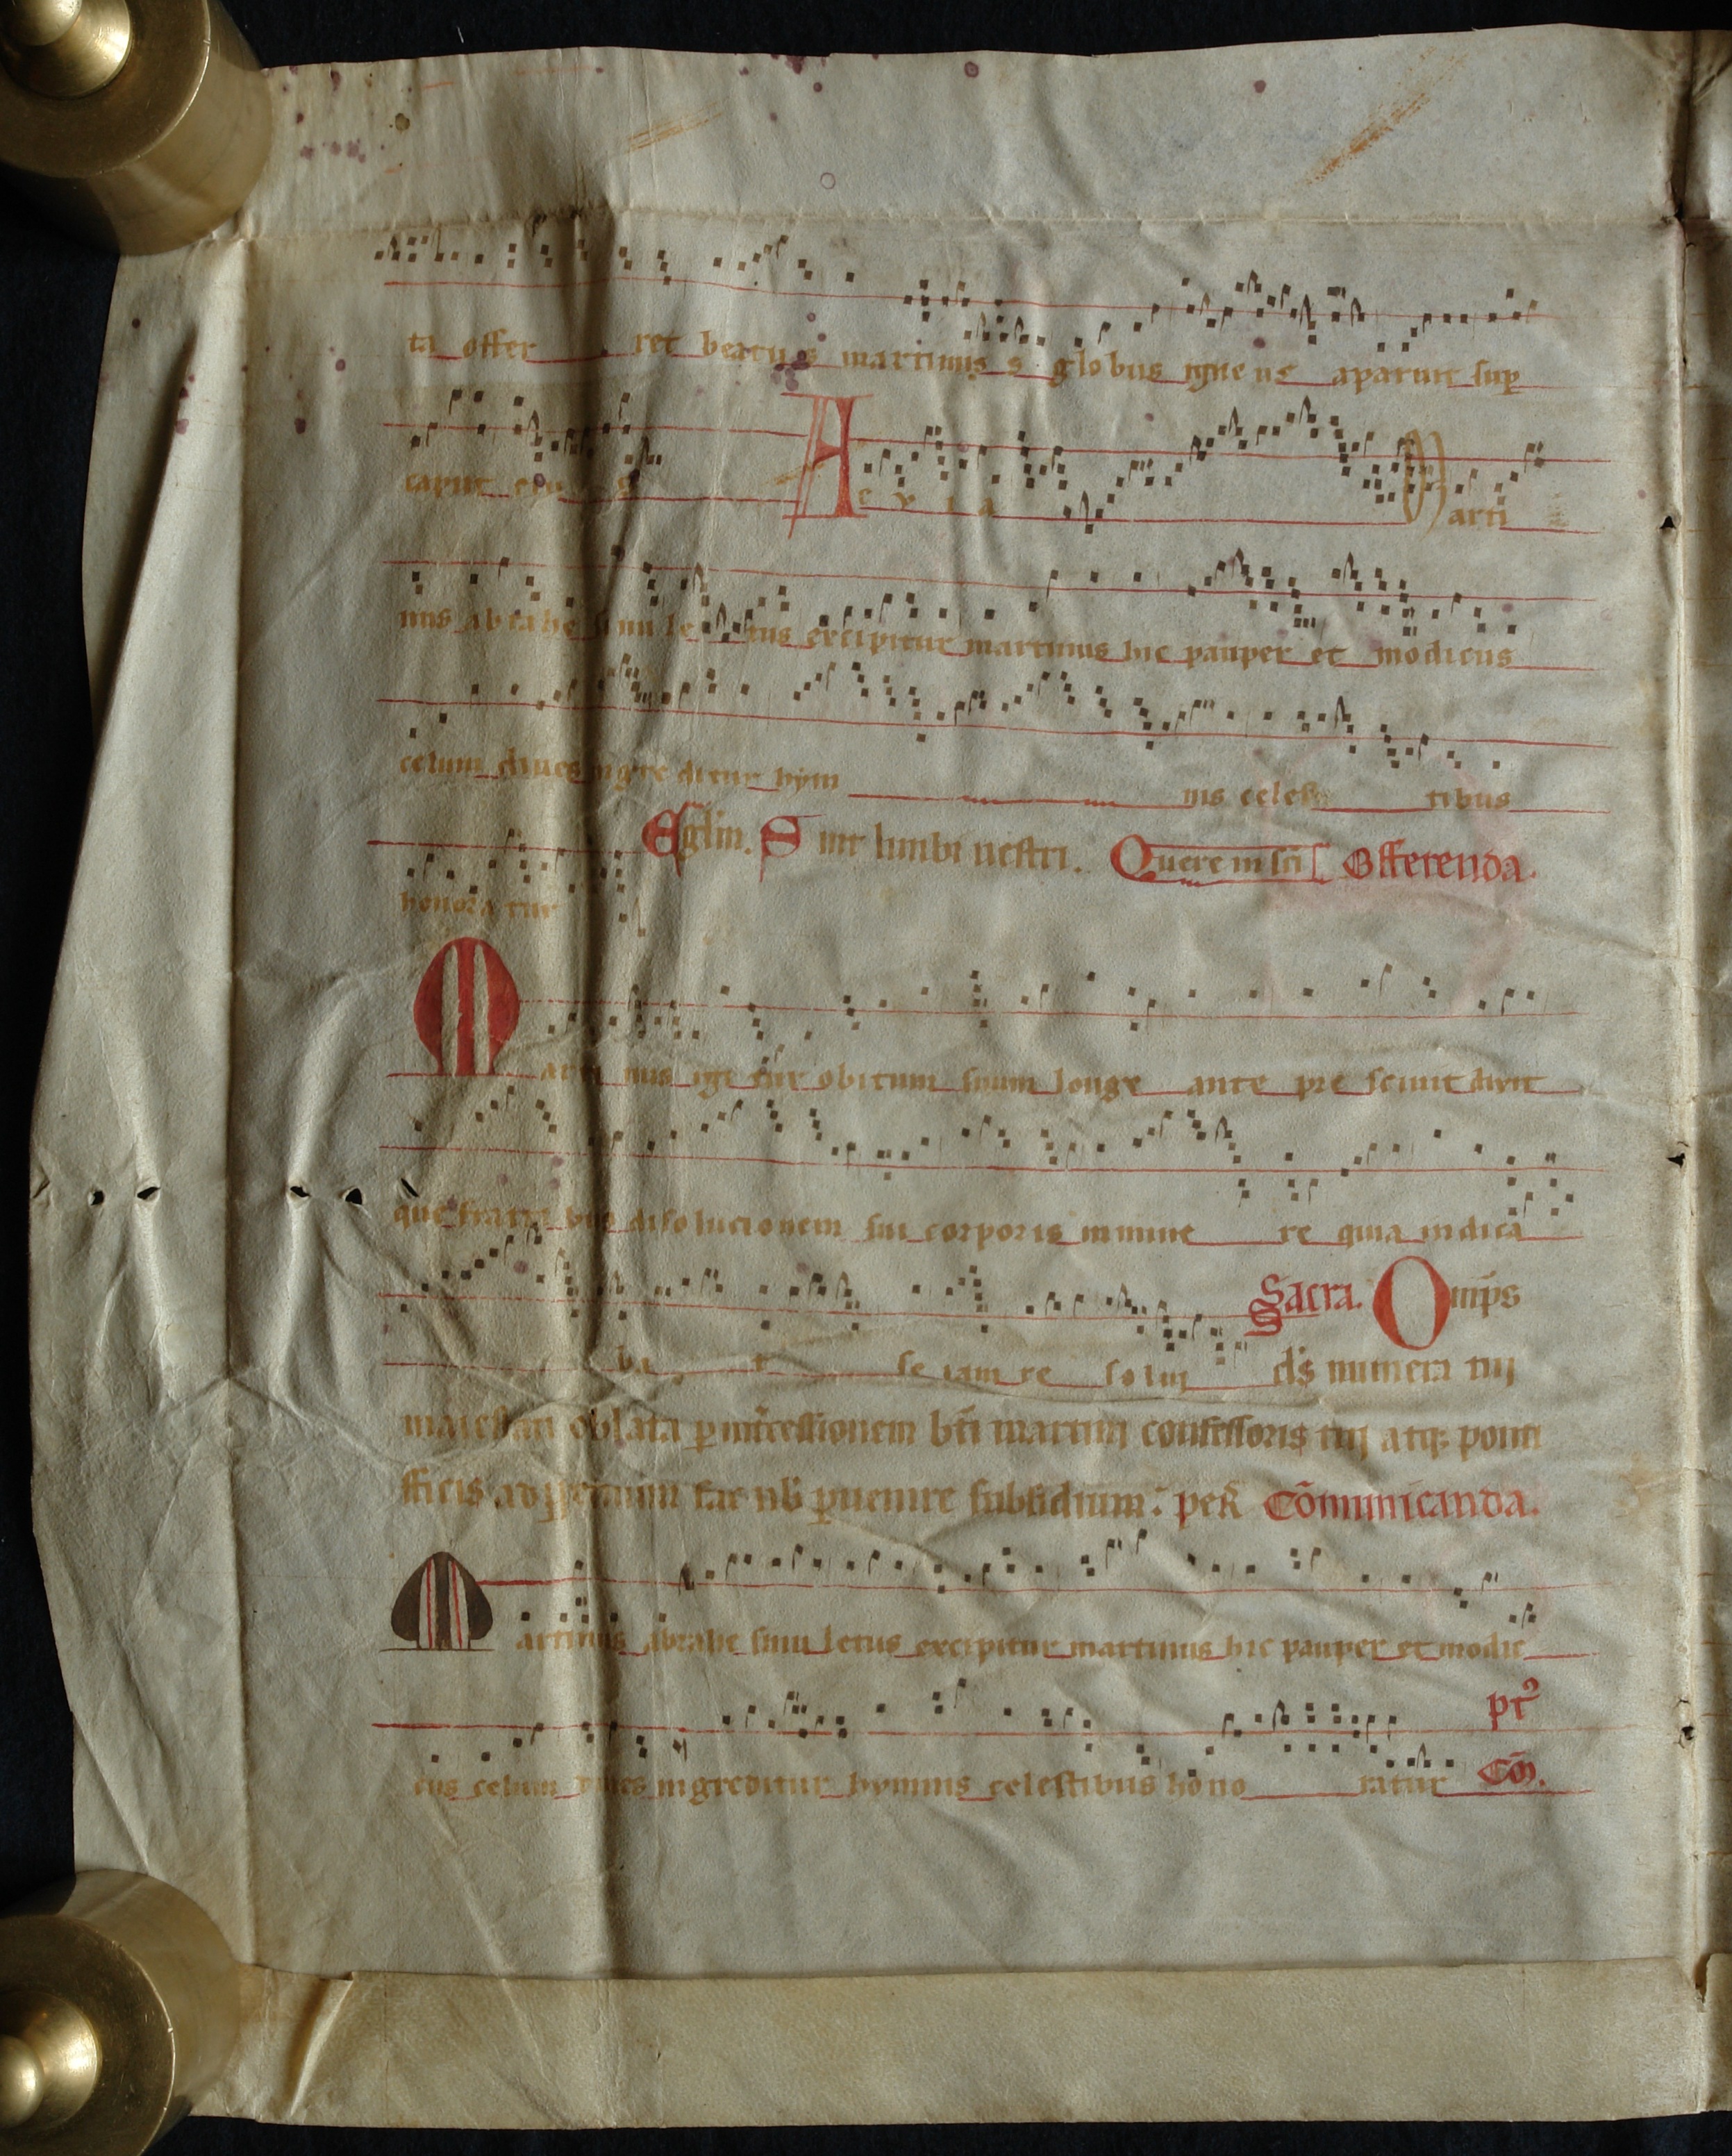 ta offer ret beatus martinus s globus igneus aparuit sup
caput eius A e v i a Marti
nus abrahe sinu letus excipitur martinus hic pauper et modicus
celum dives ingreditur hym nis celestibus
Eglm. Sint lumbi vestri. Quere in sci Offerenda.
honoratur
Martinus igitur obitum suum longe ante presciuit dixit
que fratribus disolucionem sui corporis inmine re quia indica
Sacra. Omps
ba t se iam re solui ds munera tuj
maiestati oblata p intcessionem bti martinj confessoris tuj atq ponti
fficis ad perpetuum fac nb puenire subsidium. per Comunicanda.
Martinus abrahe sinu letus excipitur martinus hic pauper et modic
pt
cus celum dives ingreditur hymnis celestibus hono ratur Co.